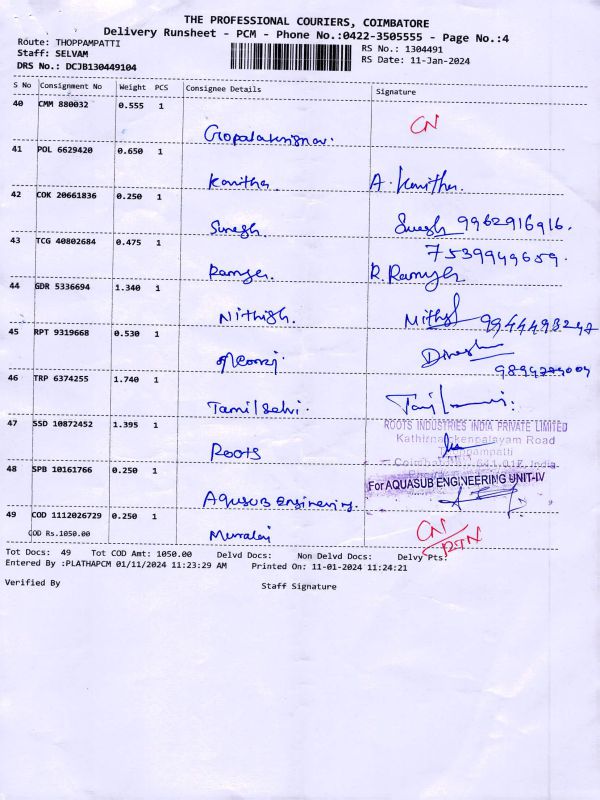 THE PROFESSIONAL COURIERS, COIMBATORE
Delivery Runsheet - PCM - Phone No.:0422-3505555 - Page No.:4
Route: THOPPAMPATTI
RS No.: 1304491
Staff: SELVAM
RS Date: 11-Jan-2024
DRS No.: DCJB130449104
S No Consignment No Weight PCS Consignee Details Signature
40 CMM 880032 0.555 1
Gopalakrishnan. CN
41 POL 6629420 0.650 1
Kavitha A. Kavitha.
42 COK 20661836 0.250 1
Suresh Suresh 9962916916.
43 TCG 40802684 0.475 1
7539949659.
Ramya. R. Ramya
44 GDR 5336694 1.340 1
Nithish. Nithish
45 RPT 9319668 0.530 1
Dinesh
46 TRP 6374255 1.740 1
Tamilselvi.
47 SSD 10872452 1.395 1
ROOTS INDUSTRIES INDIA PRIVATE LIMITED
Road
Roots
48 SPB 10161766 0.250 1
For AQUASUB ENGINEERING UNIT-IV
Aqusub Engineering.
49 COD 1112026729 0.250 1
COD Rs.1050.00
CN
RTN
Tot Docs: 49 Tot COD Amt: 1050.00 Delvd Docs: Non Delvd Docs: Delvy Pts:
Entered By :PLATHAPCM 01/11/2024 11:23:29 AM Printed On: 11-01-2024 11:24:21
Verified By Staff Signature